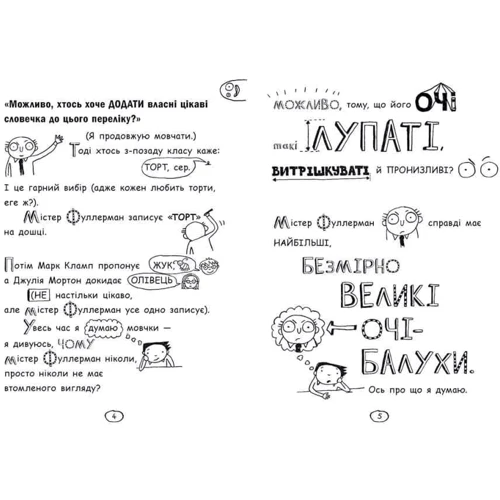 «Можливо, хтось хоче ДОДАТИ власні цікаві
словечка до цього переліку?»
(Я продовжую мовчати.)
Тоді хтось з-позаду класу каже:
ТОРТ, сер.
І це гарний вибір (адже кожен любить торти,
еге ж?).
Містер Фуллерман записує «ТОРТ»
на дошці.
Потім Марк Кламп пропонує ЖУК,
а Джулія Мортон докидає ОЛІВЕЦЬ
(НЕ настільки цікаво,
але містер Фуллерман усе одно записує).
Увесь час я думаю мовчки —
я дивуюсь, ЧОМУ
Містер Фуллерман ніколи,
просто ніколи не має
втомленого вигляду?
4
МОЖЛИВО, тому, що його ОЧІ
такі ЛУПАТІ,
ВИТРІШКУВАТІ й ПРОНИЗЛИВІ?
Містер Фуллерман справді має
НАЙБІЛЬШІ,
БЕЗМІРНО
ВЕЛИКІ
ОЧІ-
БАЛУХИ.
Ось про що я думаю.
5